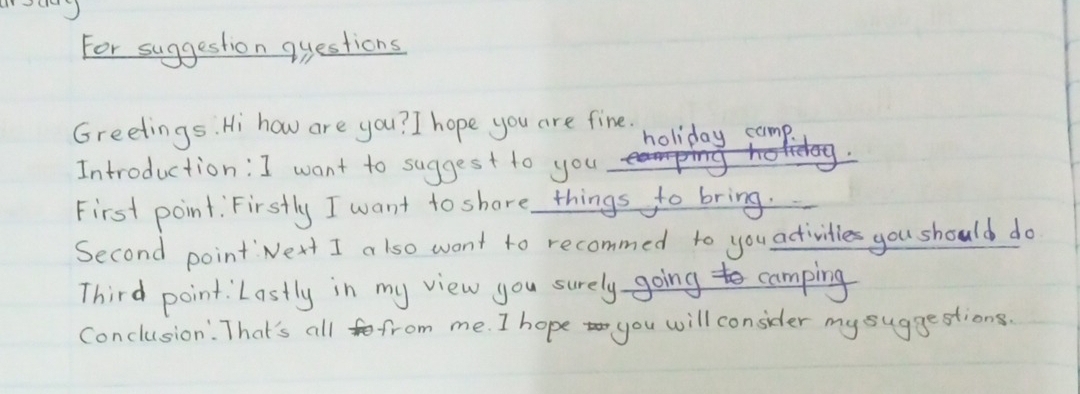 For suggestion questions
Greetings. Hi how are you? I hope you are fine.
holiday camp.
Introduction: I want to suggest to you camping holiday.
First point: Firstly I want to share things to bring.
Second point: Next I also want to recommed to you activities you should do
Third point: Lastly in my view you surely going to camping
Conclusion: That's all from me. I hope you will consider my suggestions.